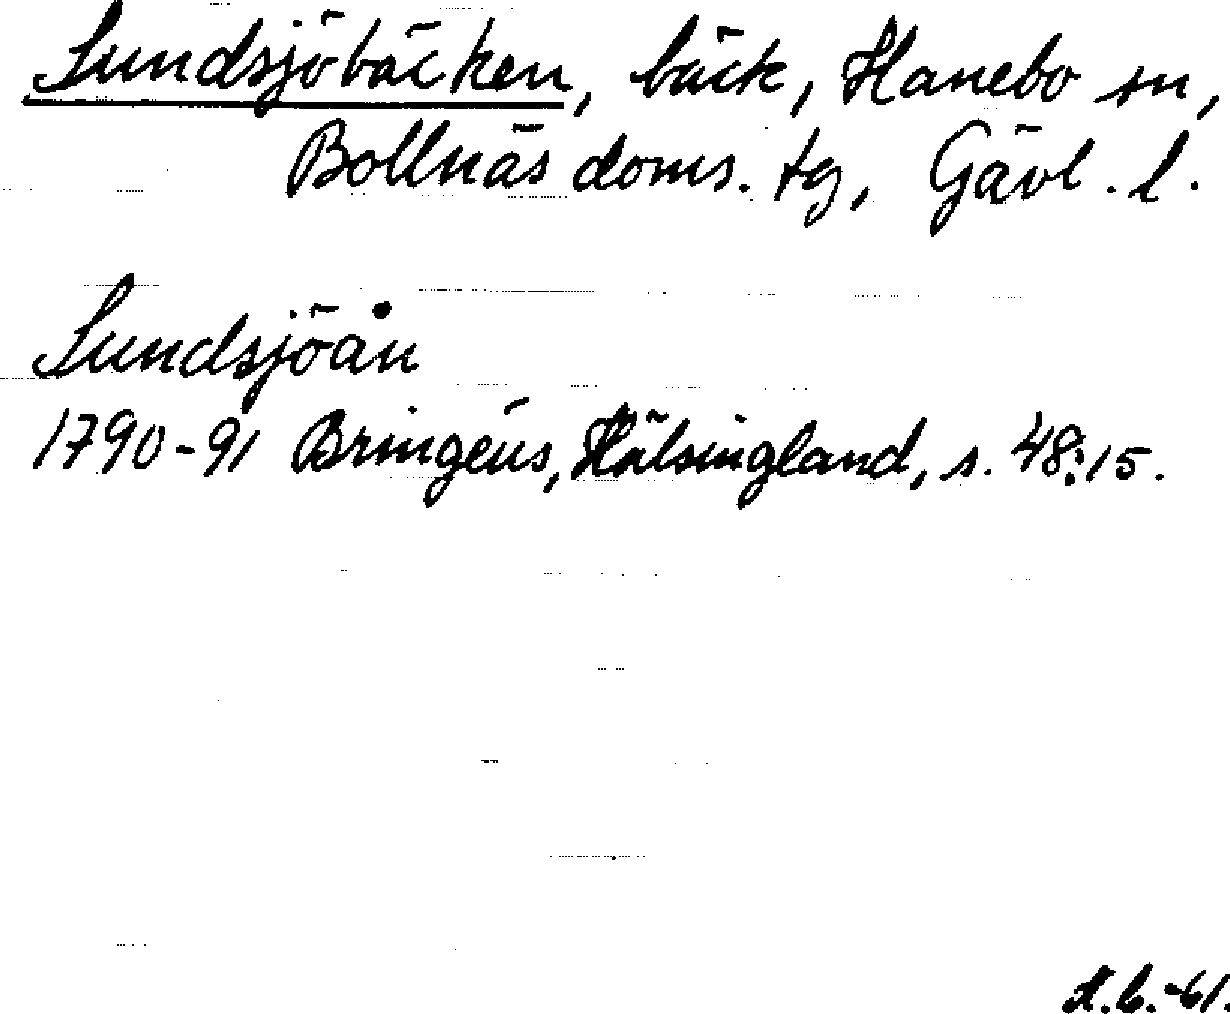 Sundsjöbäcken, bäck, Hanebo sn,
Bollnäs doms. tg, Gävl. l.
Sundsjöån
1790-91 Bringéus, Hälsingland, s. 48:15.
-61.